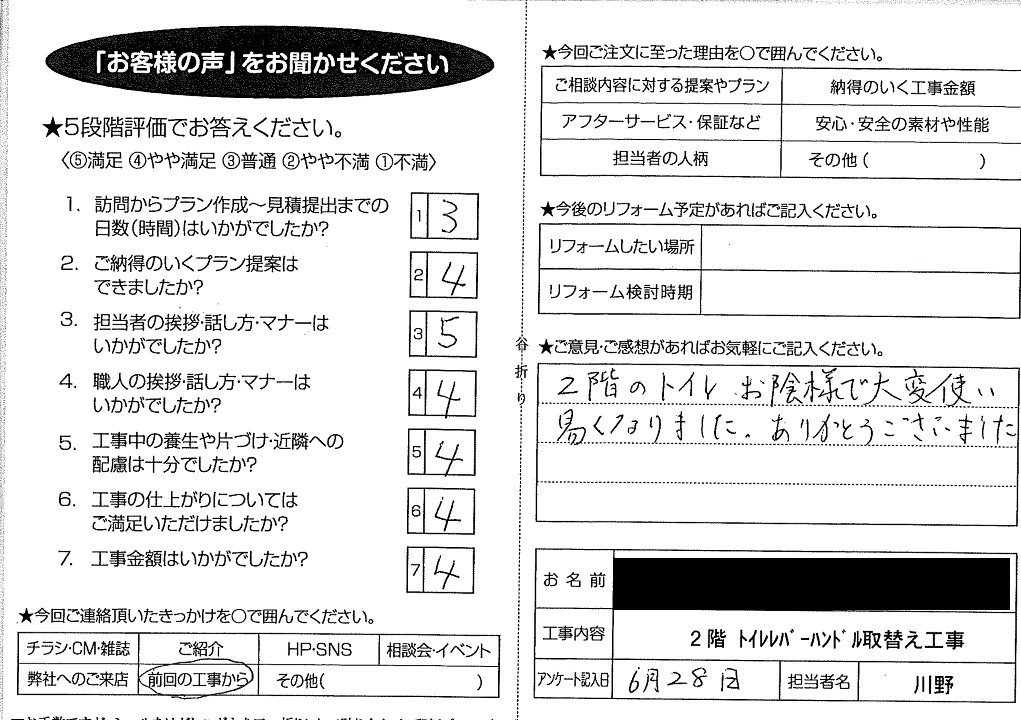 「お客様の声」をお聞かせください
★5段階評価でお答えください。
〈⑤満足 ④やや満足 ③普通 ②やや不満 ①不満〉
1. 訪問からプラン作成～見積提出までの
日数(時間)はいかがでしたか?
1 3
2. ご納得のいくプラン提案は
できましたか?
2 4
3. 担当者の挨拶・話し方・マナーは
いかがでしたか?
3 5
4. 職人の挨拶・話し方・マナーは
いかがでしたか?
4 4
5. 工事中の養生や片づけ・近隣への
配慮は十分でしたか?
5 4
6. 工事の仕上がりについては
ご満足いただけましたか?
6 4
7. 工事金額はいかがでしたか?
7 4
★今回ご連絡頂いたきっかけを○で囲んでください。
チラシ・CM・雑誌 ご紹介 HP・SNS 相談会・イベント
弊社へのご来店 前回の工事から その他( )
谷折り
★今回ご注文に至った理由を○で囲んでください。
ご相談内容に対する提案やプラン 納得のいく工事金額
アフターサービス・保証など 安心・安全の素材や性能
担当者の人柄 その他( )
★今後のリフォーム予定があればご記入ください。
リフォームしたい場所
リフォーム検討時期
★ご意見・ご感想があればお気軽にご記入ください。
2階のトイレ お陰様で大変使い
易くなりました。ありがとうございました
お名前
工事内容 2階 ﾄｲﾚﾚﾊﾞｰﾊﾝﾄﾞﾙ取替え工事
アンケート記入日 6月28日 担当者名 川野